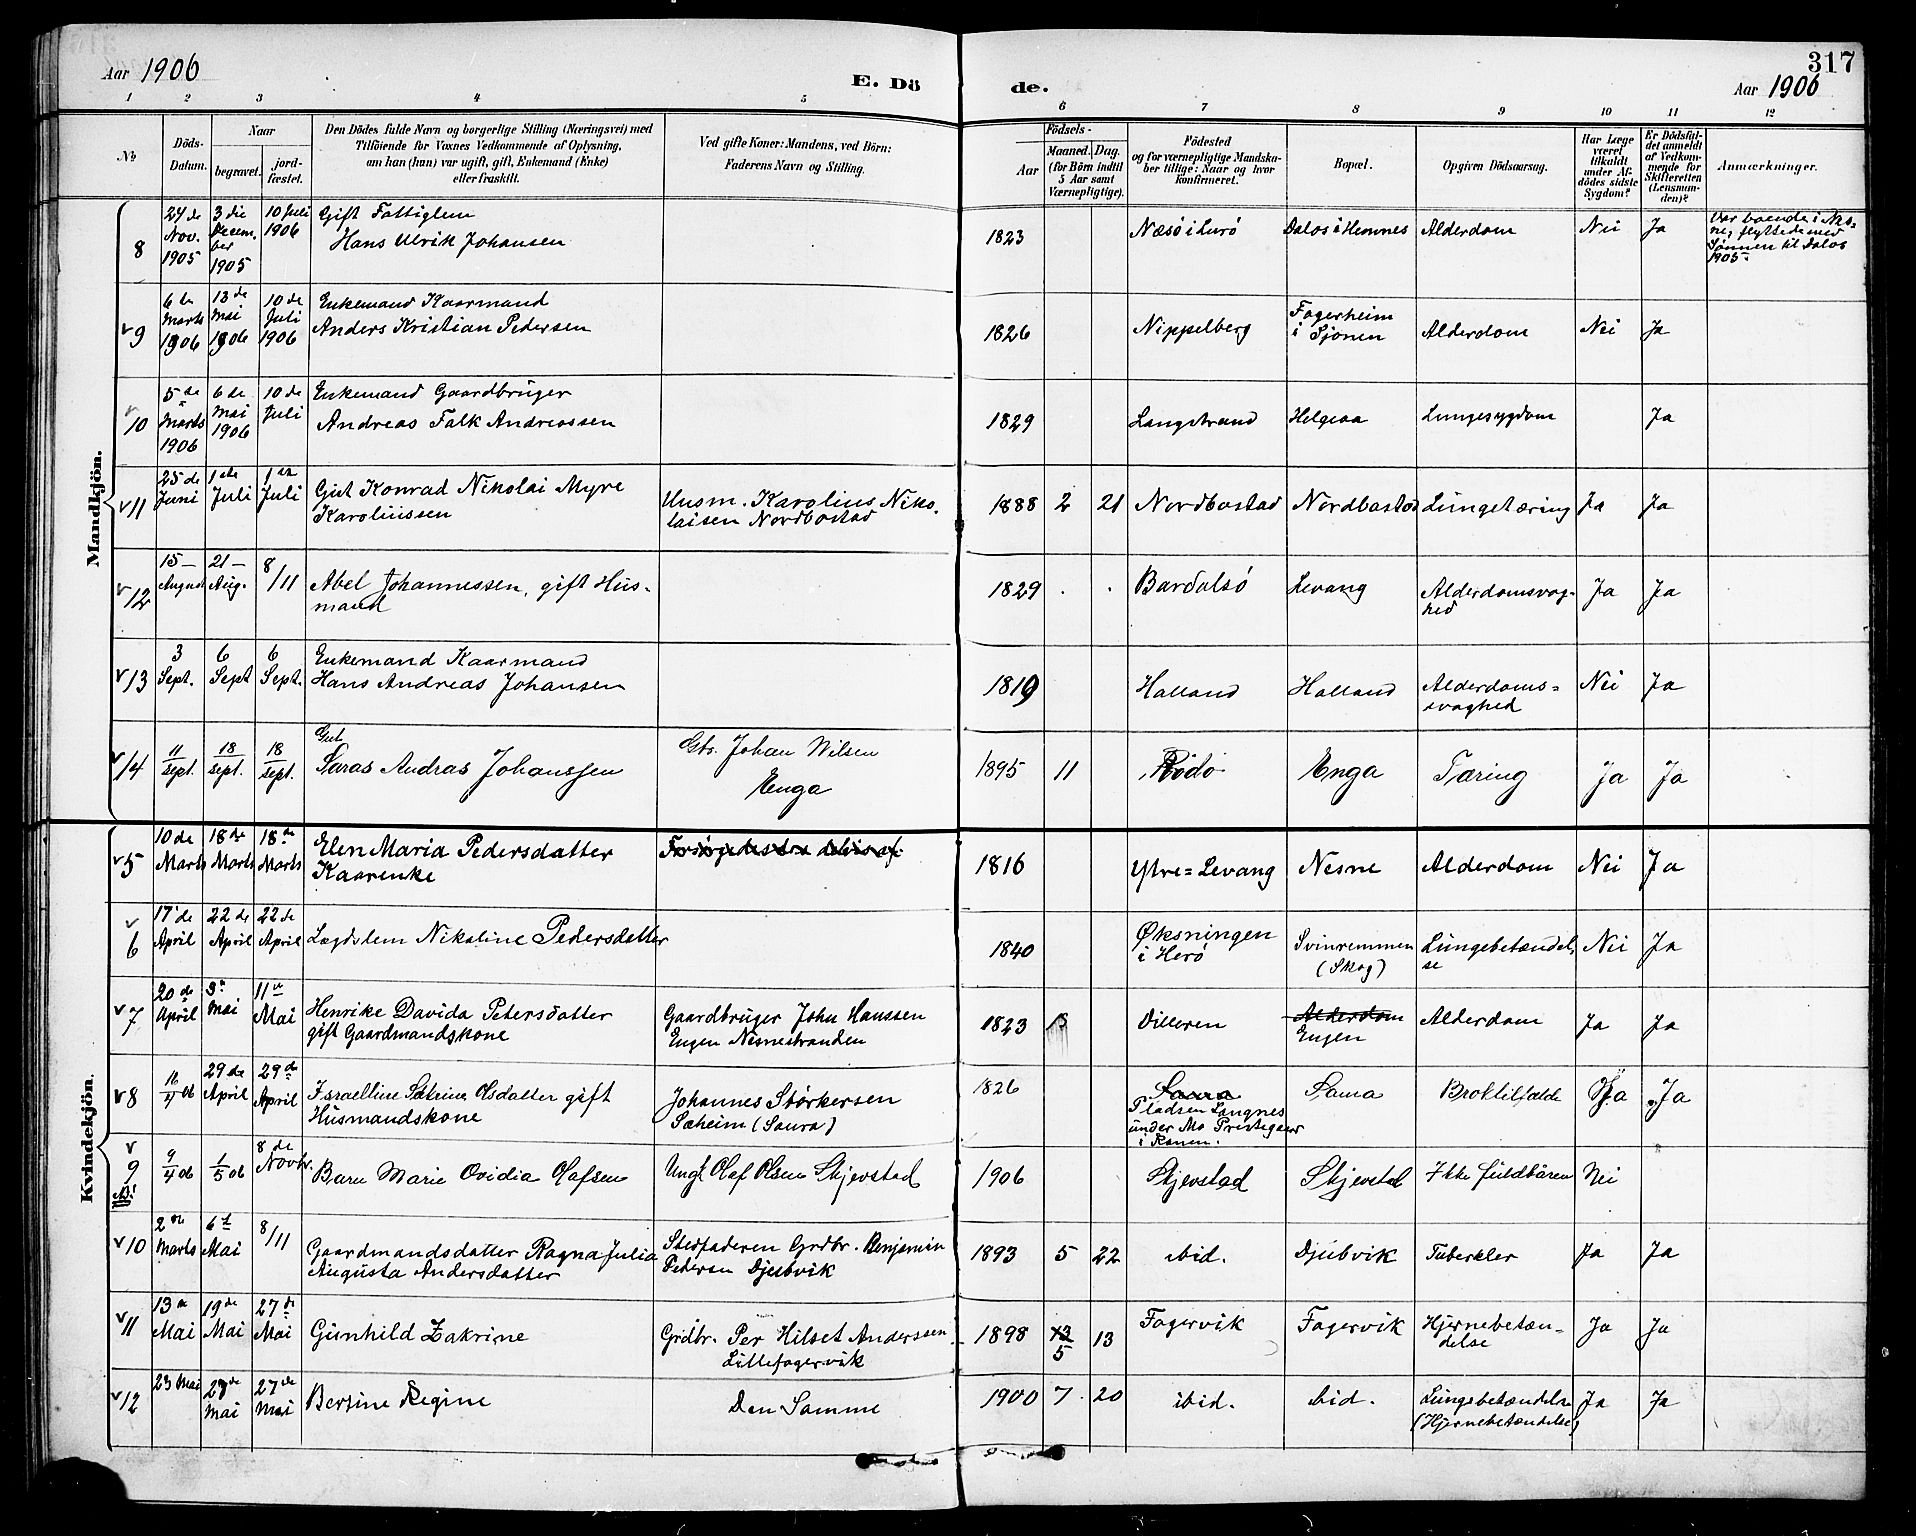 317
Aar 1906
E. Dö
de.
Aar 1906
1 2 3 4 5 6 7 8 9 10 11 12
No
Döds-Datum.
Naar
begravet.
jord-fæstet.
Den Dödes fulde Navn og borgerlige Stilling (Næringsvei) med
Tilföiende for Voxnes Vedkommende af Oplysning,
om han (hun) var ugift, gift, Enkemand (Enke)
eller fraskilt.
Ved gifte Koner: Mandens, ved Börn:
Faderens Navn og Stilling.
Födsels-
Aar
Maaned. Dag.
(for Börn indtil
5 Aar samt
Værnepligtige).
Födested
og for værnepligtige Mandska-
ber tillige: Naar og hvor
konfirmeret.
Bopæl.
Opgiven Dödsaarsag.
Har Læge
været
tilkaldt
under Af-
dödes sidste
Sygdom?
Er Dödsfal-
det anmeldt
af Vedkom-
mende for
Skifteretten
(Lensman-
den)?
Anmærkninger.
Mandkjön.
8
24 de Nov. 1905
3 die December 1905
10 Juli 1906
Gift Fattiglem
Hans Ulrik Johansen
1823
Næsö i Lurö
Dalos i Hemnes
Alderdom
Nei
Ja
Var boende i Nes-
ne, flyttede med
Sönnen til Dalos
1905.
v 9
6 te Marts 1906
13 de Mai 1906
10 de Juli 1906
Enkemand Kaarmand
Anders Kristian Pedersen
1826
Nippelberg
Fagerheim
i Sjonen
Alderdom
Nei
Ja
v 10
5 de Marts 1906
6 de Mai 1906
10 de Juli
Enkemand Gaardbruger
Andreas Falk Andreassen
1829
Langstrand
Helgeaa
Lungesygdom
Ja
v 11
25 de Juni
1 de Juli
1 ste Juli
Gut Konrad Nikolai Myre
Karoliussen
Husm. Karolius Niko-
laisen Nordbostad
1888
2
21
Nordbostad
Nordbostad
Lungetæring
Ja
Ja
v 12
15 - August
21 - Aug.
8/11
Abel Johannessen, gift Hus-
mand
1829
Bardalsö
Levang
Alderdomsvag-
hed
Ja
Ja
v 13
3 Sept.
6 Sept
6 Sept.
Enkemand Kaarmand
Hans Andreas Johansen
1819
Halland
Halland
Alderdoms=
svaghed
Nei
Ja
v 14
11/sept.
18/sept.
18/sept.
Gut
Saras Andras Johanssen
Gbr. Johan Nilsen
Enga
1895
11
Rödö
Enga
Tæring
Ja
Ja
Kvindekjön.
v 5
10 de Marts
18 de Marts
18 de Marts
Elen Maria Pedersdatter
Kaarenke
1816
Ytre=Levang
Nesne
Alderdom
Nei
Ja
v 6
17 de April
22 de April
22 de April
Lægdslem Nikoline Pedersdatter
1840
Øksningen
i Herö
Svinremmen
(Skog)
Lungebetændel-
se
Nei
Ja
v 7
20 de April
Mai
11 te Mai
Henrike Davida Petersdatter
gift Gaardmandskone
Gaardbruger John Hanssen
Engen Nesnestranden
1823
Villeren
Alderdom
Engen
Alderdom
Ja
Ja
v 8
16/4 06
29 de April
29 de April
Israelline Satrine Olsdatter gift
Husmandskone
Johannes Störkersen
Sæheim (Saura)
1826
Saura
Pladsen Langnes
under Mo Prestegaar
i Ranen.
Saura
Broktilfælde
Ja
Ja
v 9
9/4 06
1/5 06
8 de Novbr.
Barn Marie Ovidia Olafsen
Ungk Olaf Olsen Skjevstad
1906
Skjevstad
Skjevstad
Ikke fuldbåren
Nei
v 10
2 den Marts
6 te Mai
8/11
Gaardmandsdatter Ragna Julia
Augusta Andersdatter
Stedfaderen Grdbr. Benjamin
Pedersen Djubvik
1893
5
22
ibid.
Djubvik
Tuberkler
Ja
Ja
v 11
13 de Mai
19 de Mai
27 de Mai
Gunhild Zakrine
Grdbr. Per Hilset Anderssen
Lillefagervik
1898
5
13
Fagervik
Fagervik
Hjernebetæn-
delse
Ja
Ja
v 12
23 Mai
27 de Mai
27 de Mai
Bersine Regine
Den Samme
1900
7
20
ibid.
ibid.
Lungebetændelse
(Hjernebetændelse)
Ja
Ja